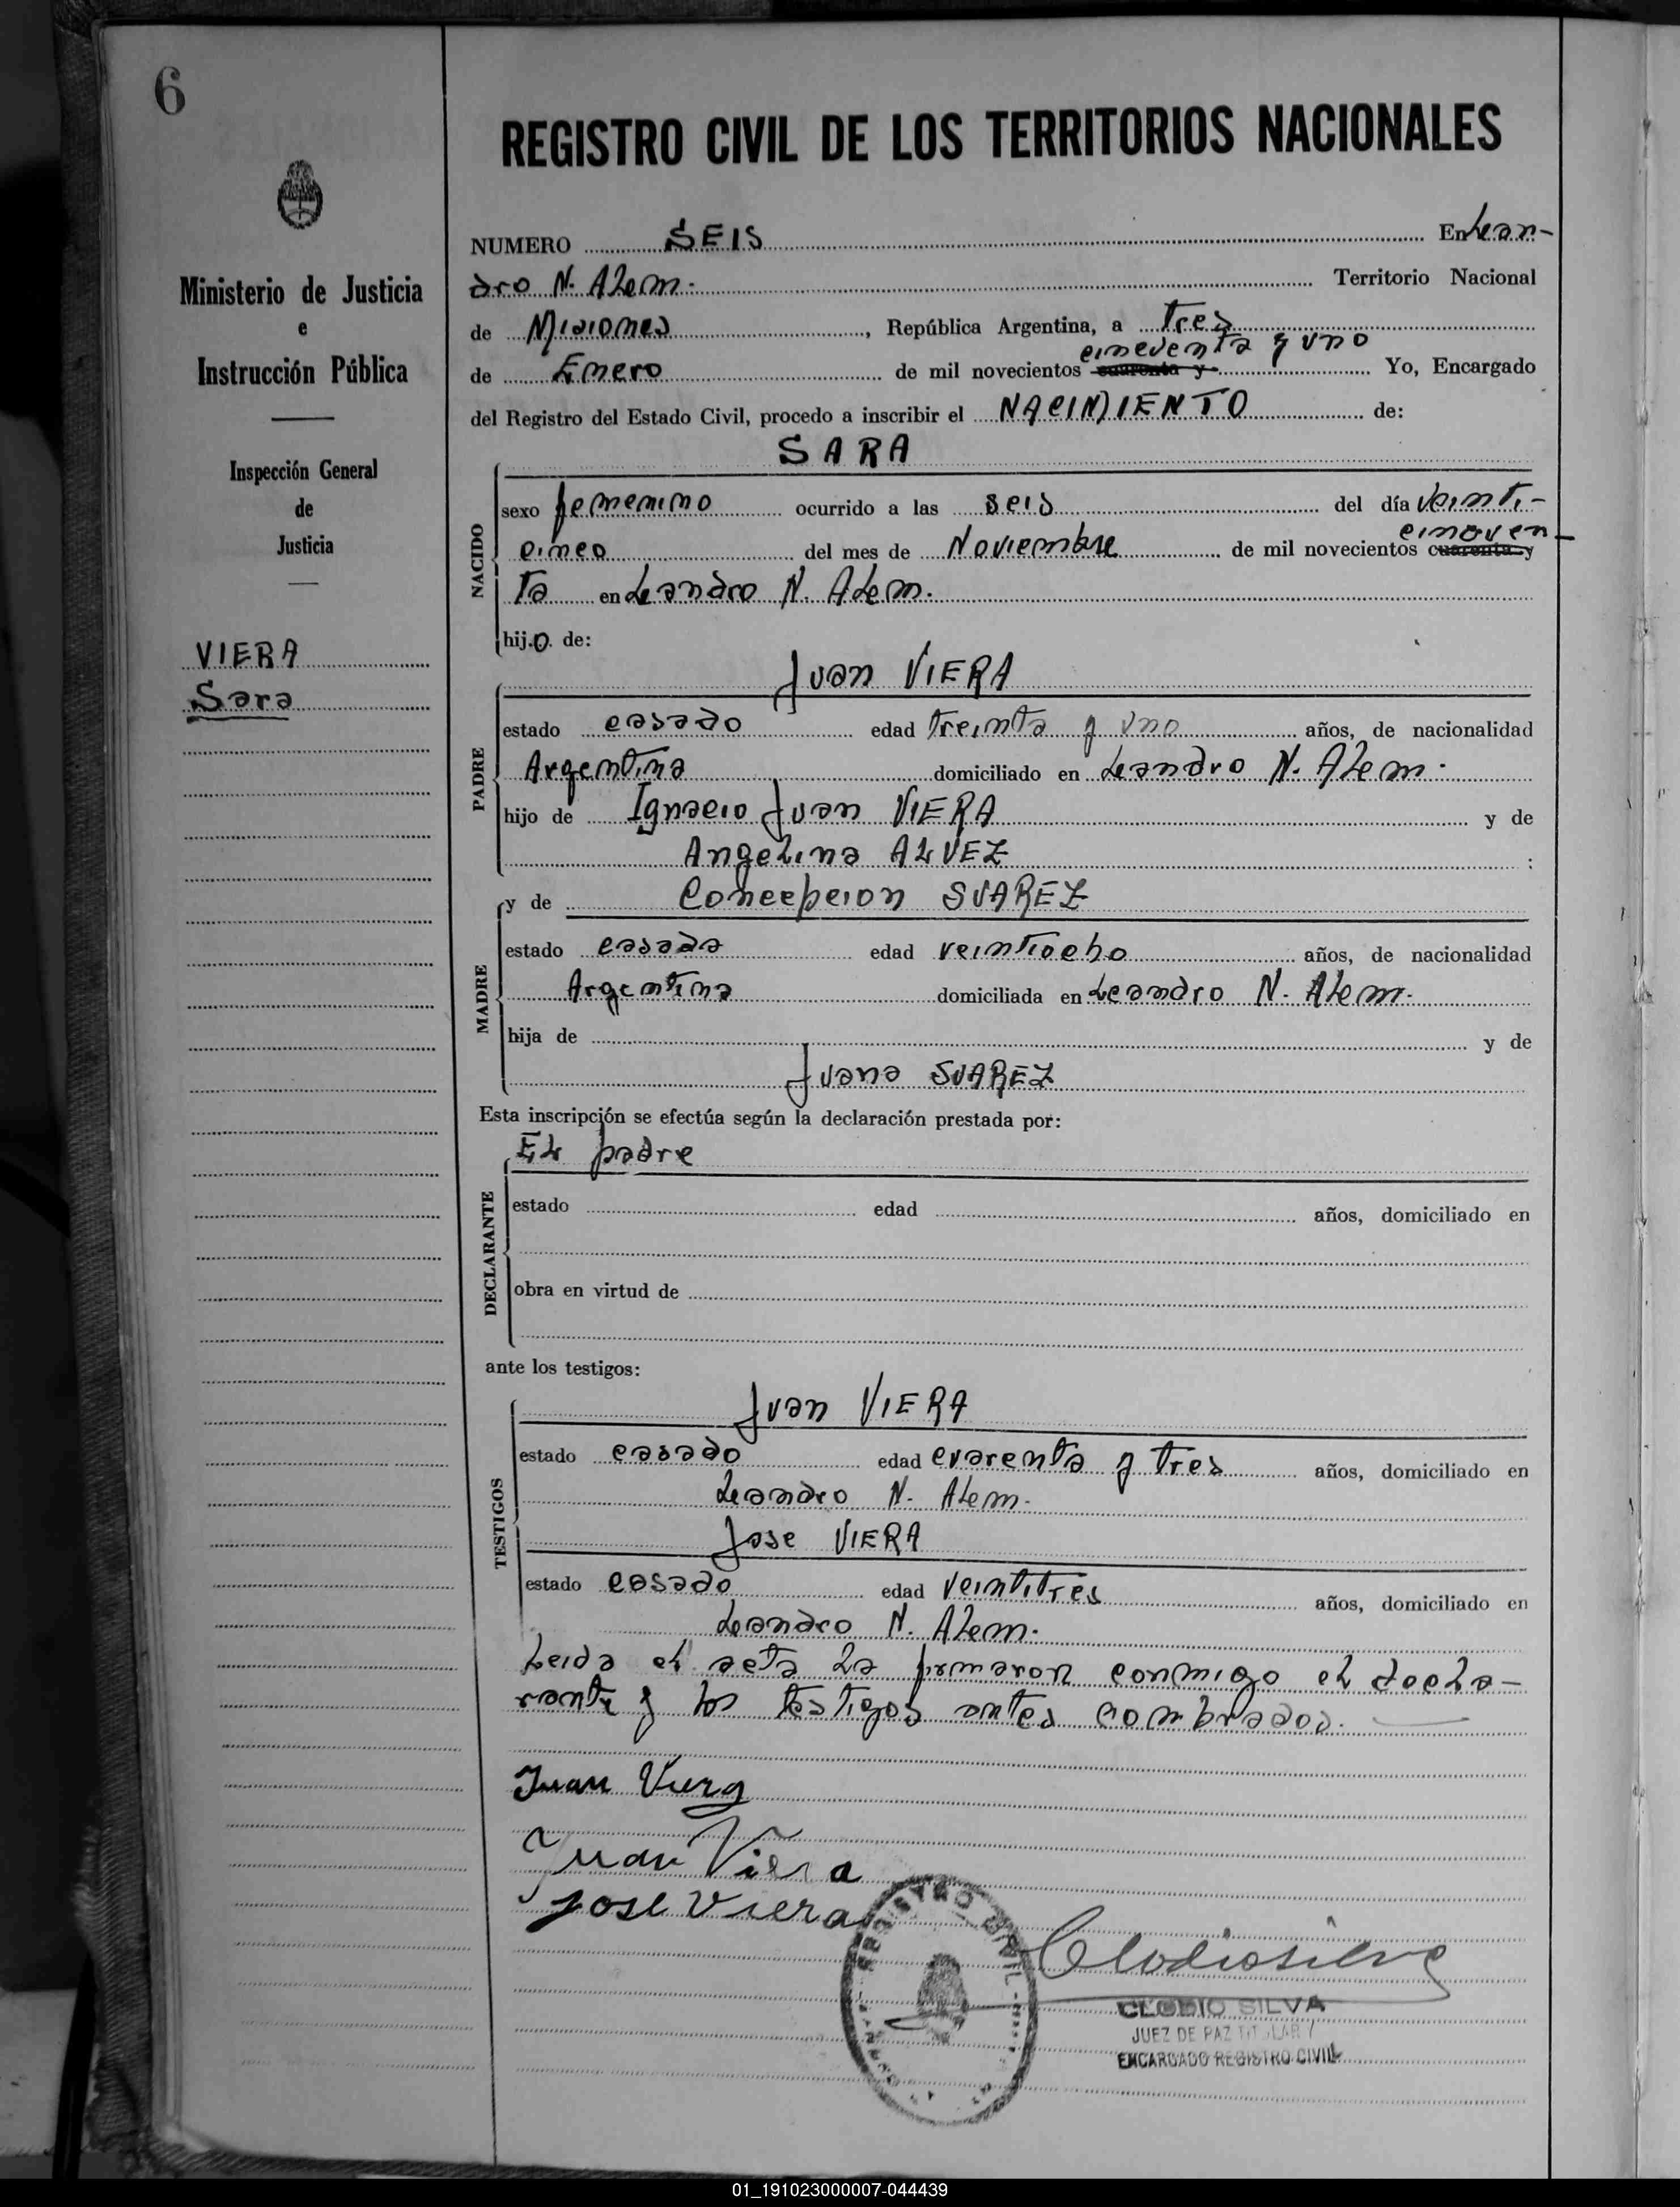 6
REGISTRO CIVIL DE LOS TERRITORIOS NACIONALES
Ministerio de Justicia
e
Instrucción Pública
Inspección General
de
Justicia
VIERA
Sara
NUMERO SEIS En Lean-
dro N. Alem. Territorio Nacional
de Misiones, República Argentina, a tres
cincuenta y uno
de Enero de mil novecientos cuarenta y Yo, Encargado
del Registro del Estado Civil, procedo a inscribir el NACIMIENTO de:
SARA
NACIDO
sexo femenino ocurrido a las seis del día veinti-
cincuen-
cinco del mes de Noviembre de mil novecientos cuarenta y
ta en Leandro N. Alem.
hijo de:
Juan VIERA
PADRE
estado casado edad treinta y uno años, de nacionalidad
Argentina domiciliado en Leandro N. Alem.
hijo de Ignacio Juan VIERA y de
Angelina ALVEZ :
y de Concepcion SUAREZ
MADRE
estado casada edad veintiocho años, de nacionalidad
Argentina domiciliada en Leandro N. Alem.
hija de y de
Juana SUAREZ
Esta inscripción se efectúa según la declaración prestada por:
El padre
DECLARANTE
estado edad años, domiciliado en
obra en virtud de
ante los testigos:
Juan VIERA
TESTIGOS
estado casado edad cuarenta y tres años, domiciliado en
Leandro N. Alem.
Jose VIERA
estado casado edad veintitres años, domiciliado en
Leandro N. Alem.
Leida el acta la firmaron conmigo el decla-
rante y los testigos antes nombrados.
Juan Viera
Juan Viera
jose Viera
REGISTRO CIVIL
Clodio Silva
CLODIO SILVA
JUEZ DE PAZ TITULAR /
ENCARGADO REGISTRO CIVIL
01_191023000007-044439